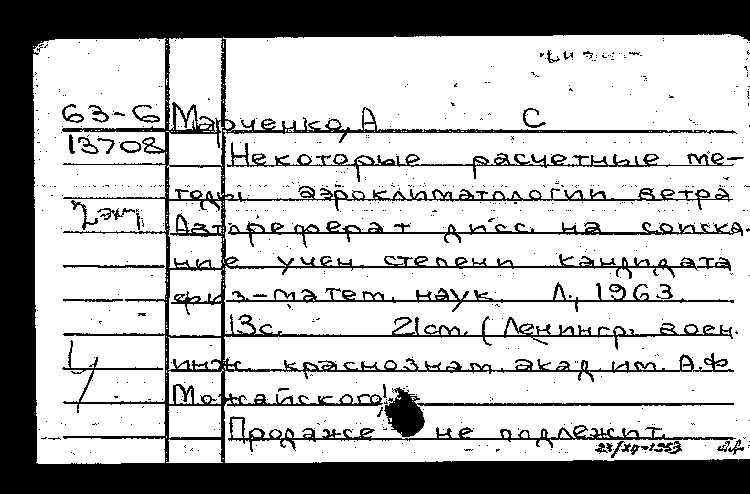 63-6 Марченко, А С
13708 Некоторые расчетные ме-
тоды аэроклиматологии ветра
2 экз Автореферат дисс. на соиска-
ние учен. степени кандидата
физ-матем. наук. Л., 1963.
13с. 21см. (Ленингр. воен.
инж. краснознам. акад им. А.Ф
Можайского)
Продаже не подлежит.